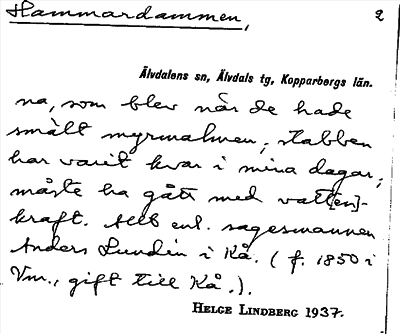 Hammardammen, 2
Älvdalens sn, Älvdals tg, Kopparbergs län.
na, som blev når de hade
smält myrmalmen; stabben
har varit kvar i mina dagar;
måste ha gått med vatt[en]-
kraft. Allt enl. sagesmannen
Anders Lundin i Kå. (f. 1850 i
Vm., gift till Kå.).
HELGE LINDBERG 1937.